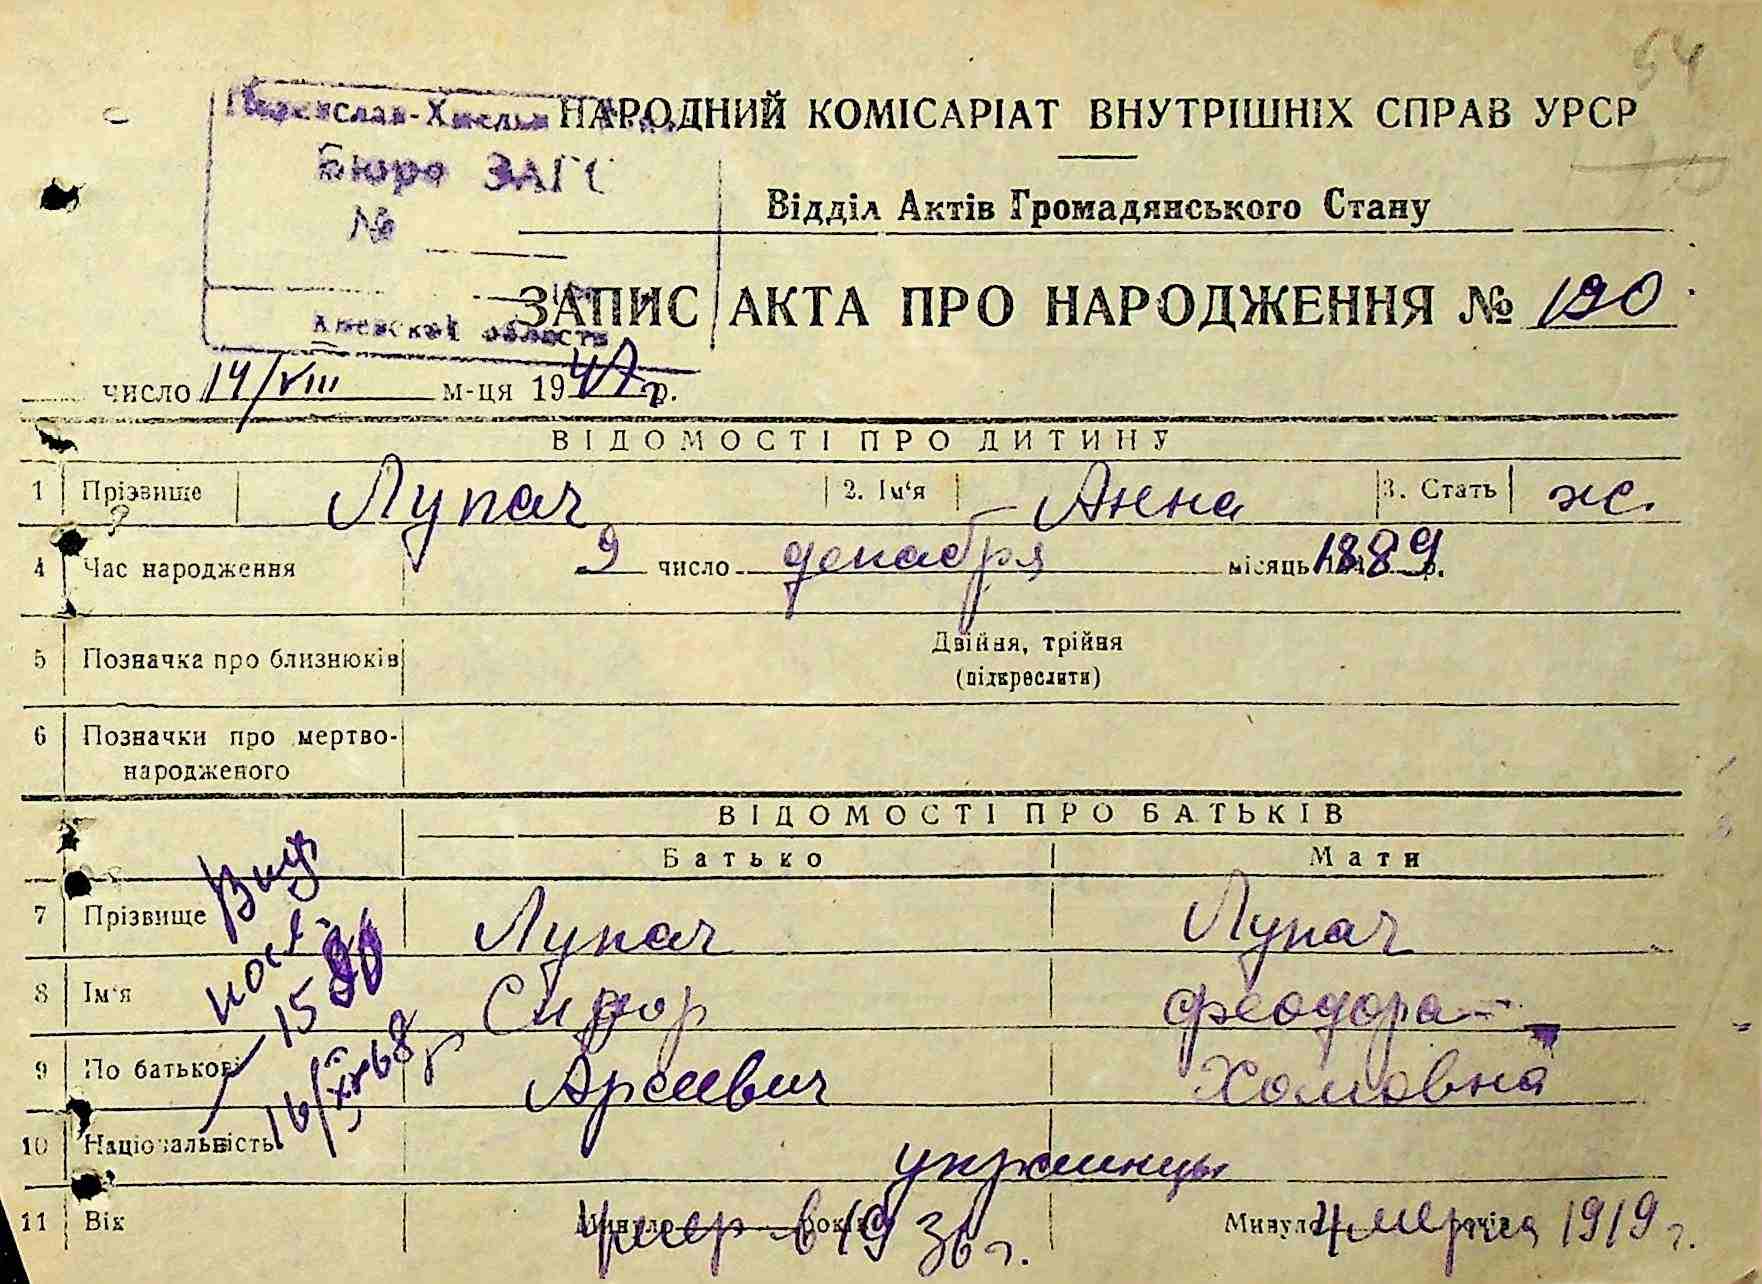 54
НАРОДНИЙ КОМІСАРІАТ ВНУТРІШНІХ СПРАВ УРСР
Бюро ЗАГС
№
Відділ Актів Громадянського Стану
ЗАПИС АКТА ПРО НАРОДЖЕННЯ № 190
Киевской области
число 14/VIII м-ця 1947 р.
ВІДОМОСТІ ПРО ДИТИНУ
1 Прізвище Лупач 2. Ім'я Анна 3. Стать ж.
4 Час народження 9 число декабря місяць 1889 р.
5 Позначка про близнюків Двійня, трійня
(підкреслити)
6 Позначки про мертво-
народженого
ВІДОМОСТІ ПРО БАТЬКІВ
Батько Мати
7 Прізвище Лупач Лупач
8 Ім'я Сидор Феодора
9 По батькові Арсеевич Хомовна
10 Національність украинцы
11 Вік Минуло років Умер в 1936 г. Минуло років Умерла 1919 г.
16/XII 68 г